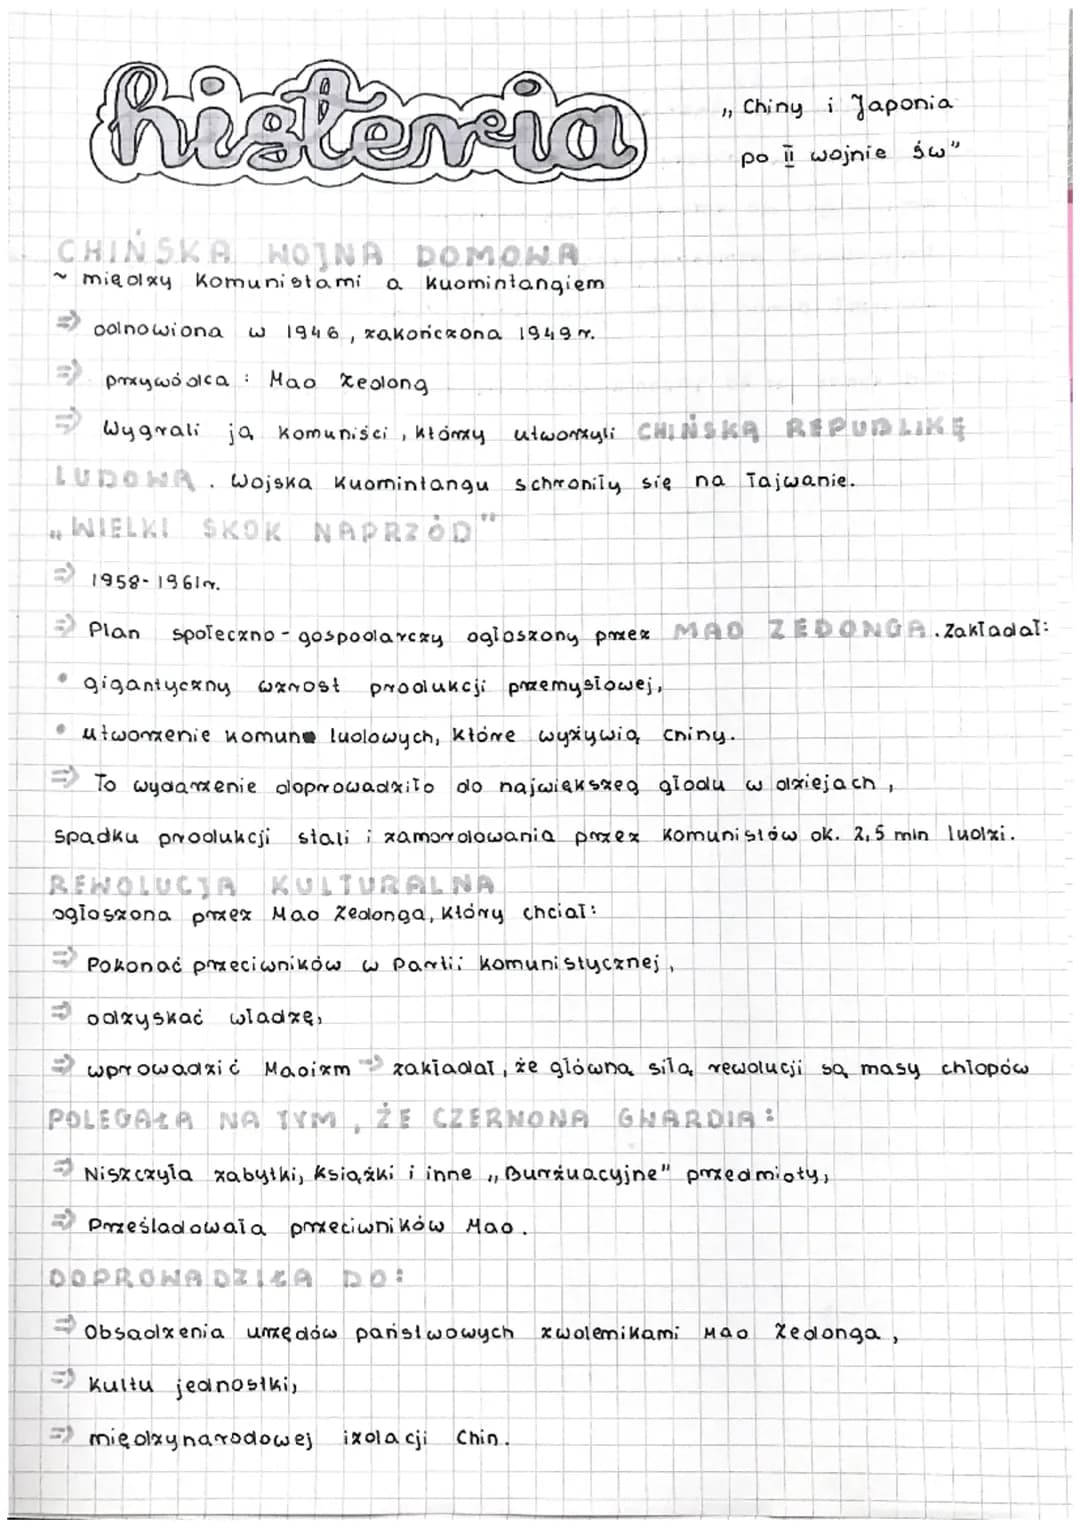 historia
„Chiny i Japonia
po II wojnie św"
CHIŃSKA WOJNA DOMOWA
~ między Komunistami a Kuomintangiem
⇒ odnowiona w 1946, zakończona 1949r.
⇒ przywódca : Mao Zedong
⇒ Wygrali ją Komuniści, którzy utworzyli CHIŃSKĄ REPUBLIKĘ
LUDOWĄ. Wojska Kuomintangu schroniły się na Tajwanie.
„WIELKI SKOK NAPRZÓD"
⇒ 1958-1961r.
⇒ Plan społeczno-gospodarczy ogłoszony przez MAO ZEDONGA. Zakładał:
• gigantyczny wzrost produkcji przemysłowej,
• utworzenie komun ludowych, które wyżywią Chiny.
⇒ To wydarzenie doprowadziło do najwiekszeg głodu w dziejach,
spadku produkcji stali i zamordowania przez Komunistów ok. 2,5 mln ludzi.
REWOLUCJA KULTURALNA
ogłoszona przez Mao Zedonga, który chciał:
⇒ Pokonać przeciwników w Partii Komunistycznej,
⇒ odzyskać władzę,
⇒ wprowadzić Maoizm ⇒ zakładał, że główną siłą rewolucji są masy chłopów
POLEGAŁA NA TYM, ŻE CZERWONA GWARDIA:
⇒ Niszczyła zabytki, Książki i inne „Burżuacyjne" przedmioty,
⇒ Prześladowała przeciwników Mao.
DOPROWADZIŁA DO:
⇒ Obsadzenia urzędów państwowych zwolenikami Mao Zedonga,
⇒ Kultu jednostki,
⇒ międzynarodowej izolacji Chin.